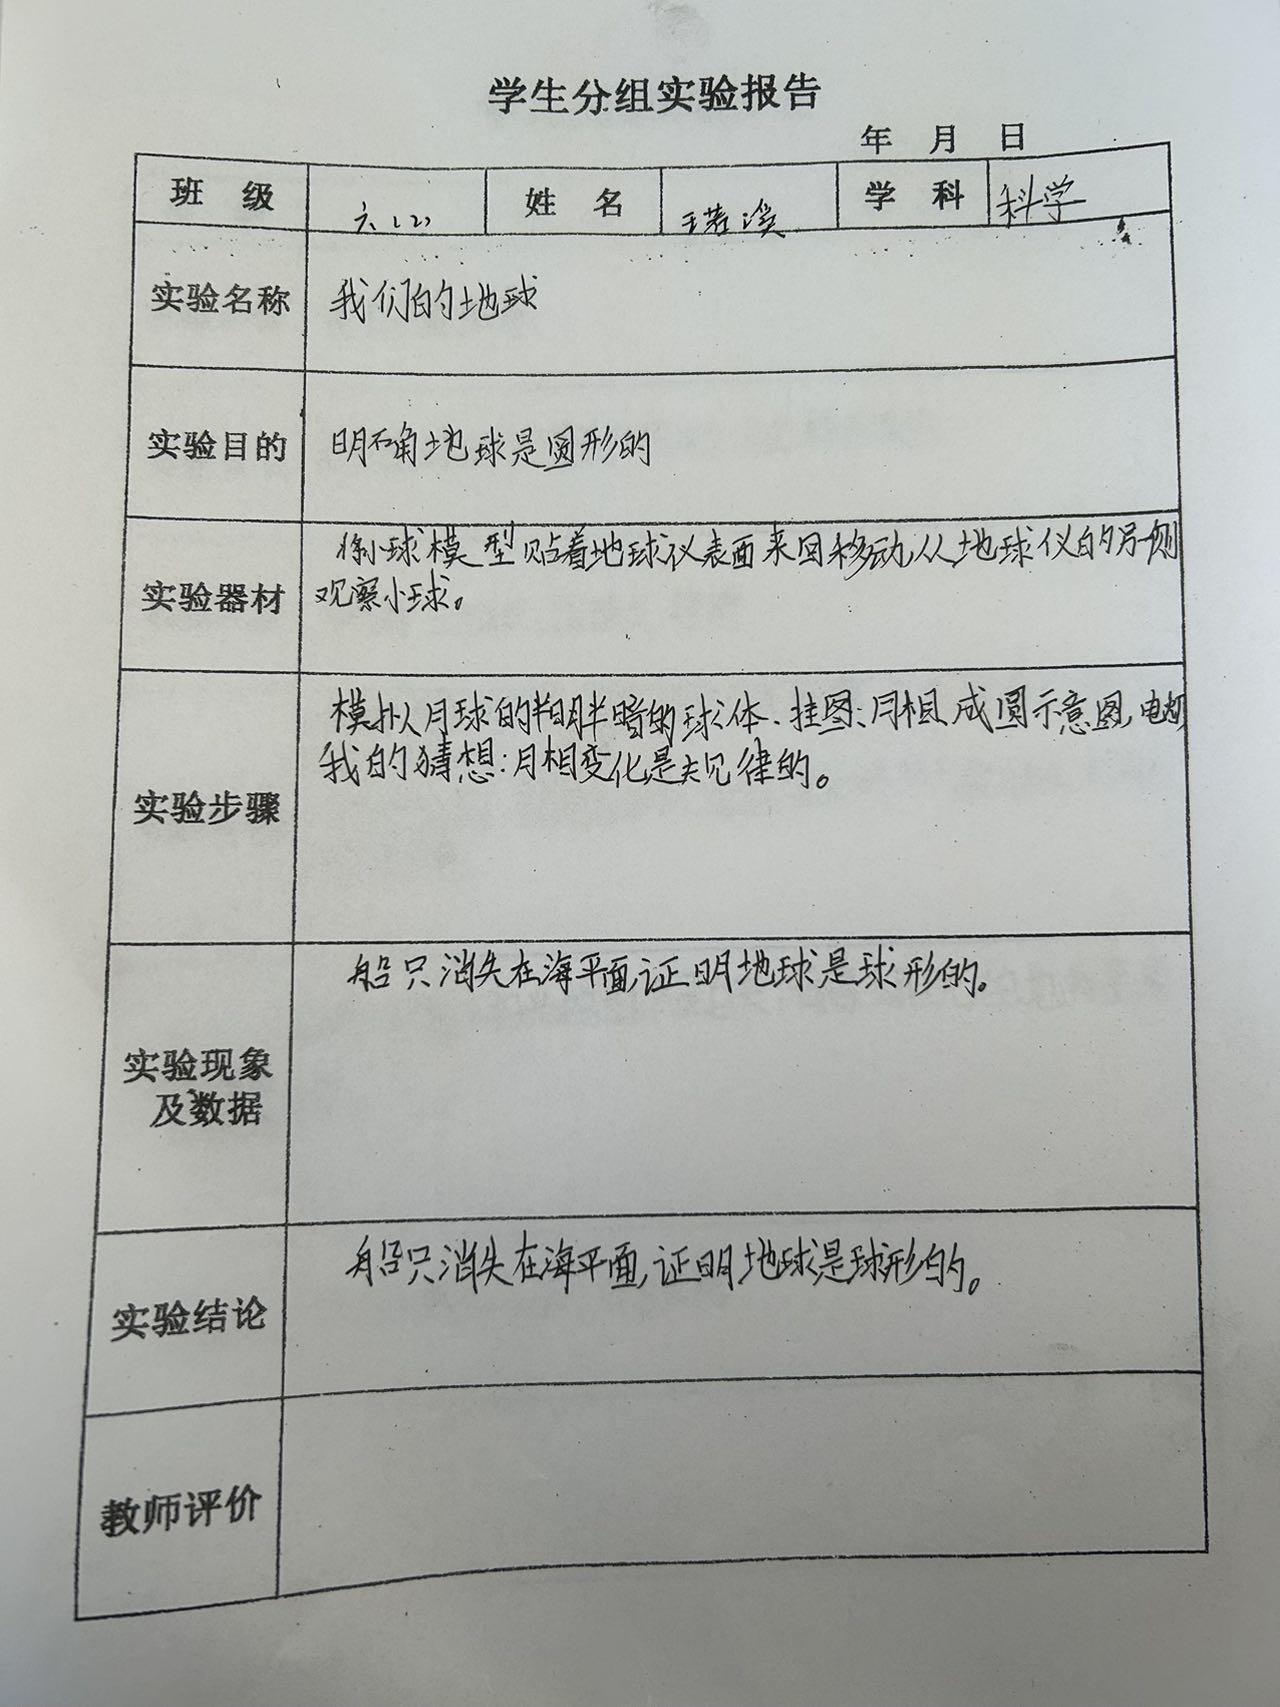 学生分组实验报告
年 月 日
班 级 六(2) 姓 名 王若溪 学 科 科学
实验名称 我们的地球
实验目的 明确地球是圆形的
将小球模型贴着地球仪表面来回移动从地球仪的另一侧
实验器材 观察小球。
模拟月球的半明半暗的球体、挂图:月相成圆示意图,电灯
我的猜想:月相变化是有规律的。
实验步骤
船只消失在海平面,证明地球是球形的。
实验现象
及数据
船只消失在海平面,证明地球是球形的。
实验结论
教师评价